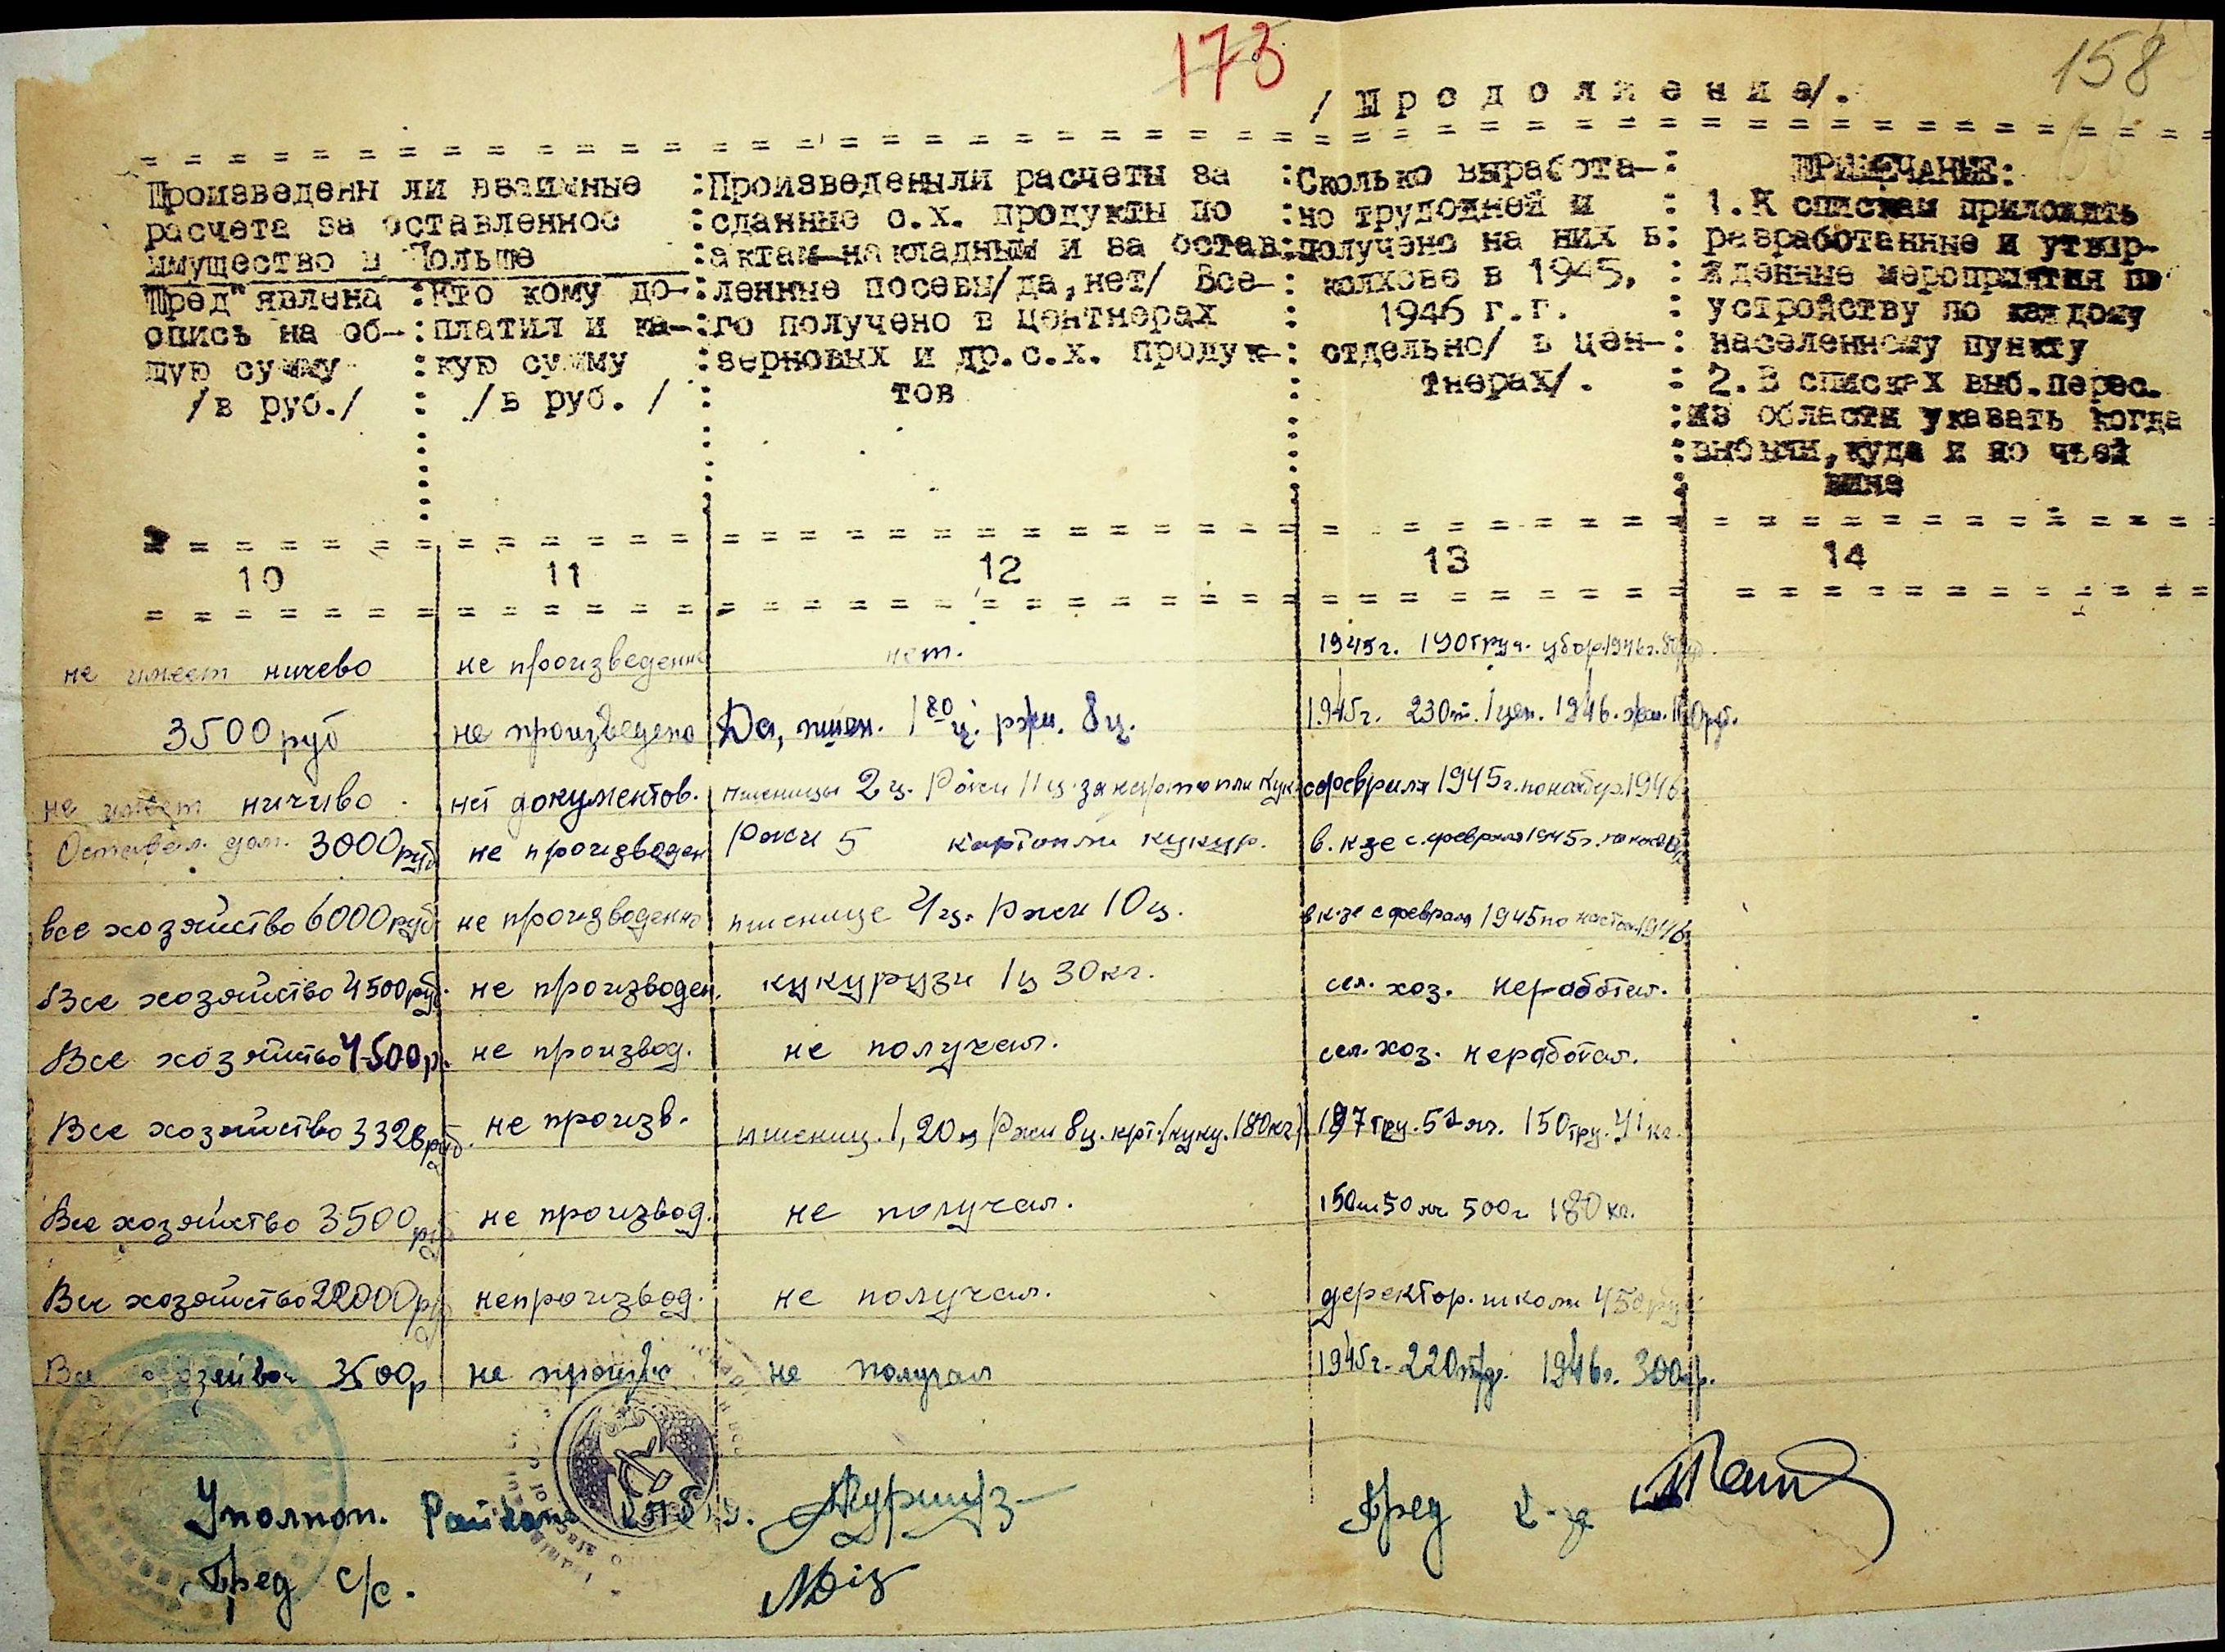 173
158
/ П р о д о л ж е н и е/.
Произведенн ли взаимные
расчета за оставленное
имущество в Польше
Пред"явлена
опись на об-
щую сумму
/в руб./
кто кому до-
платил и ка-
кую сумму
/в руб. /
Произведеныли расчеты за
сданные с.х. продукты по
актам-накладным и за остав-
ленные посевы/да,нет/ Все-
го получено в центнерах
зерновых и др.с.х. продук-
тов
Сколько выработа-
но трудодней и
получено на них в
колхозе в 1945,
1946 г.г.
отдельно/ в цен-
тнерах/.
ПРИМЕЧАНИЕ:
1. К спискам приложить
разработанные и утвер-
жденные мероприятия по
устройству по каждому
населенному пункту
2. В списках выб.перес.
из области указать когда
выбыли,куда и по чьей
вине
10 11 12 13 14
не имеет ничево не произведенно нет. 1945г. 190труд. убор.1946г.
3500 руб не произведено Да, пшен. 1 80 ц. ржи. 8 ц. 1945г. 230т. 1 цен. 1946.
не имеет ничиво. неї документов. пшеницы 2 ц. Ржи 11 ц. за картопли Кук. с февраля 1945г. по ноябр. 1946
Оставел. дом. 3000 руб не произведен Ржи 5 картопли кукур. в. к-зе с. февраля 1945г.
все хозяйство 6000 руб не произведенно пшенице 4 ц. Ржи 10 ц. в к-зе с февраля 1945 по настоя. 1946
Все хозяйство 4500 руб. не произведен. кукурузи 1 ц 30 кг. сел. хоз. неработал.
Все хозяйство 4500 р. не произвед. не получал. сел. хоз. неработал.
Все хозяйство 3328 руб. не произв. пшениц. 1,20 ц Ржи 8 ц. крт. (куку. 180 кг) 197 тру. 51 яч. 150 тру. 41 кг.
Все хозяйство 3500 руб не произвед. не получал. 150 50 яч 500 г 180 кг.
Все хозяйство 22000 руб непроизвод. не получал. деректор. школи 450 руб
Все 3500 р не произво не получал 1945г. 220 труд. 1946г. 300
Уполном. Райкома
Пред к-за
Пред с/с.